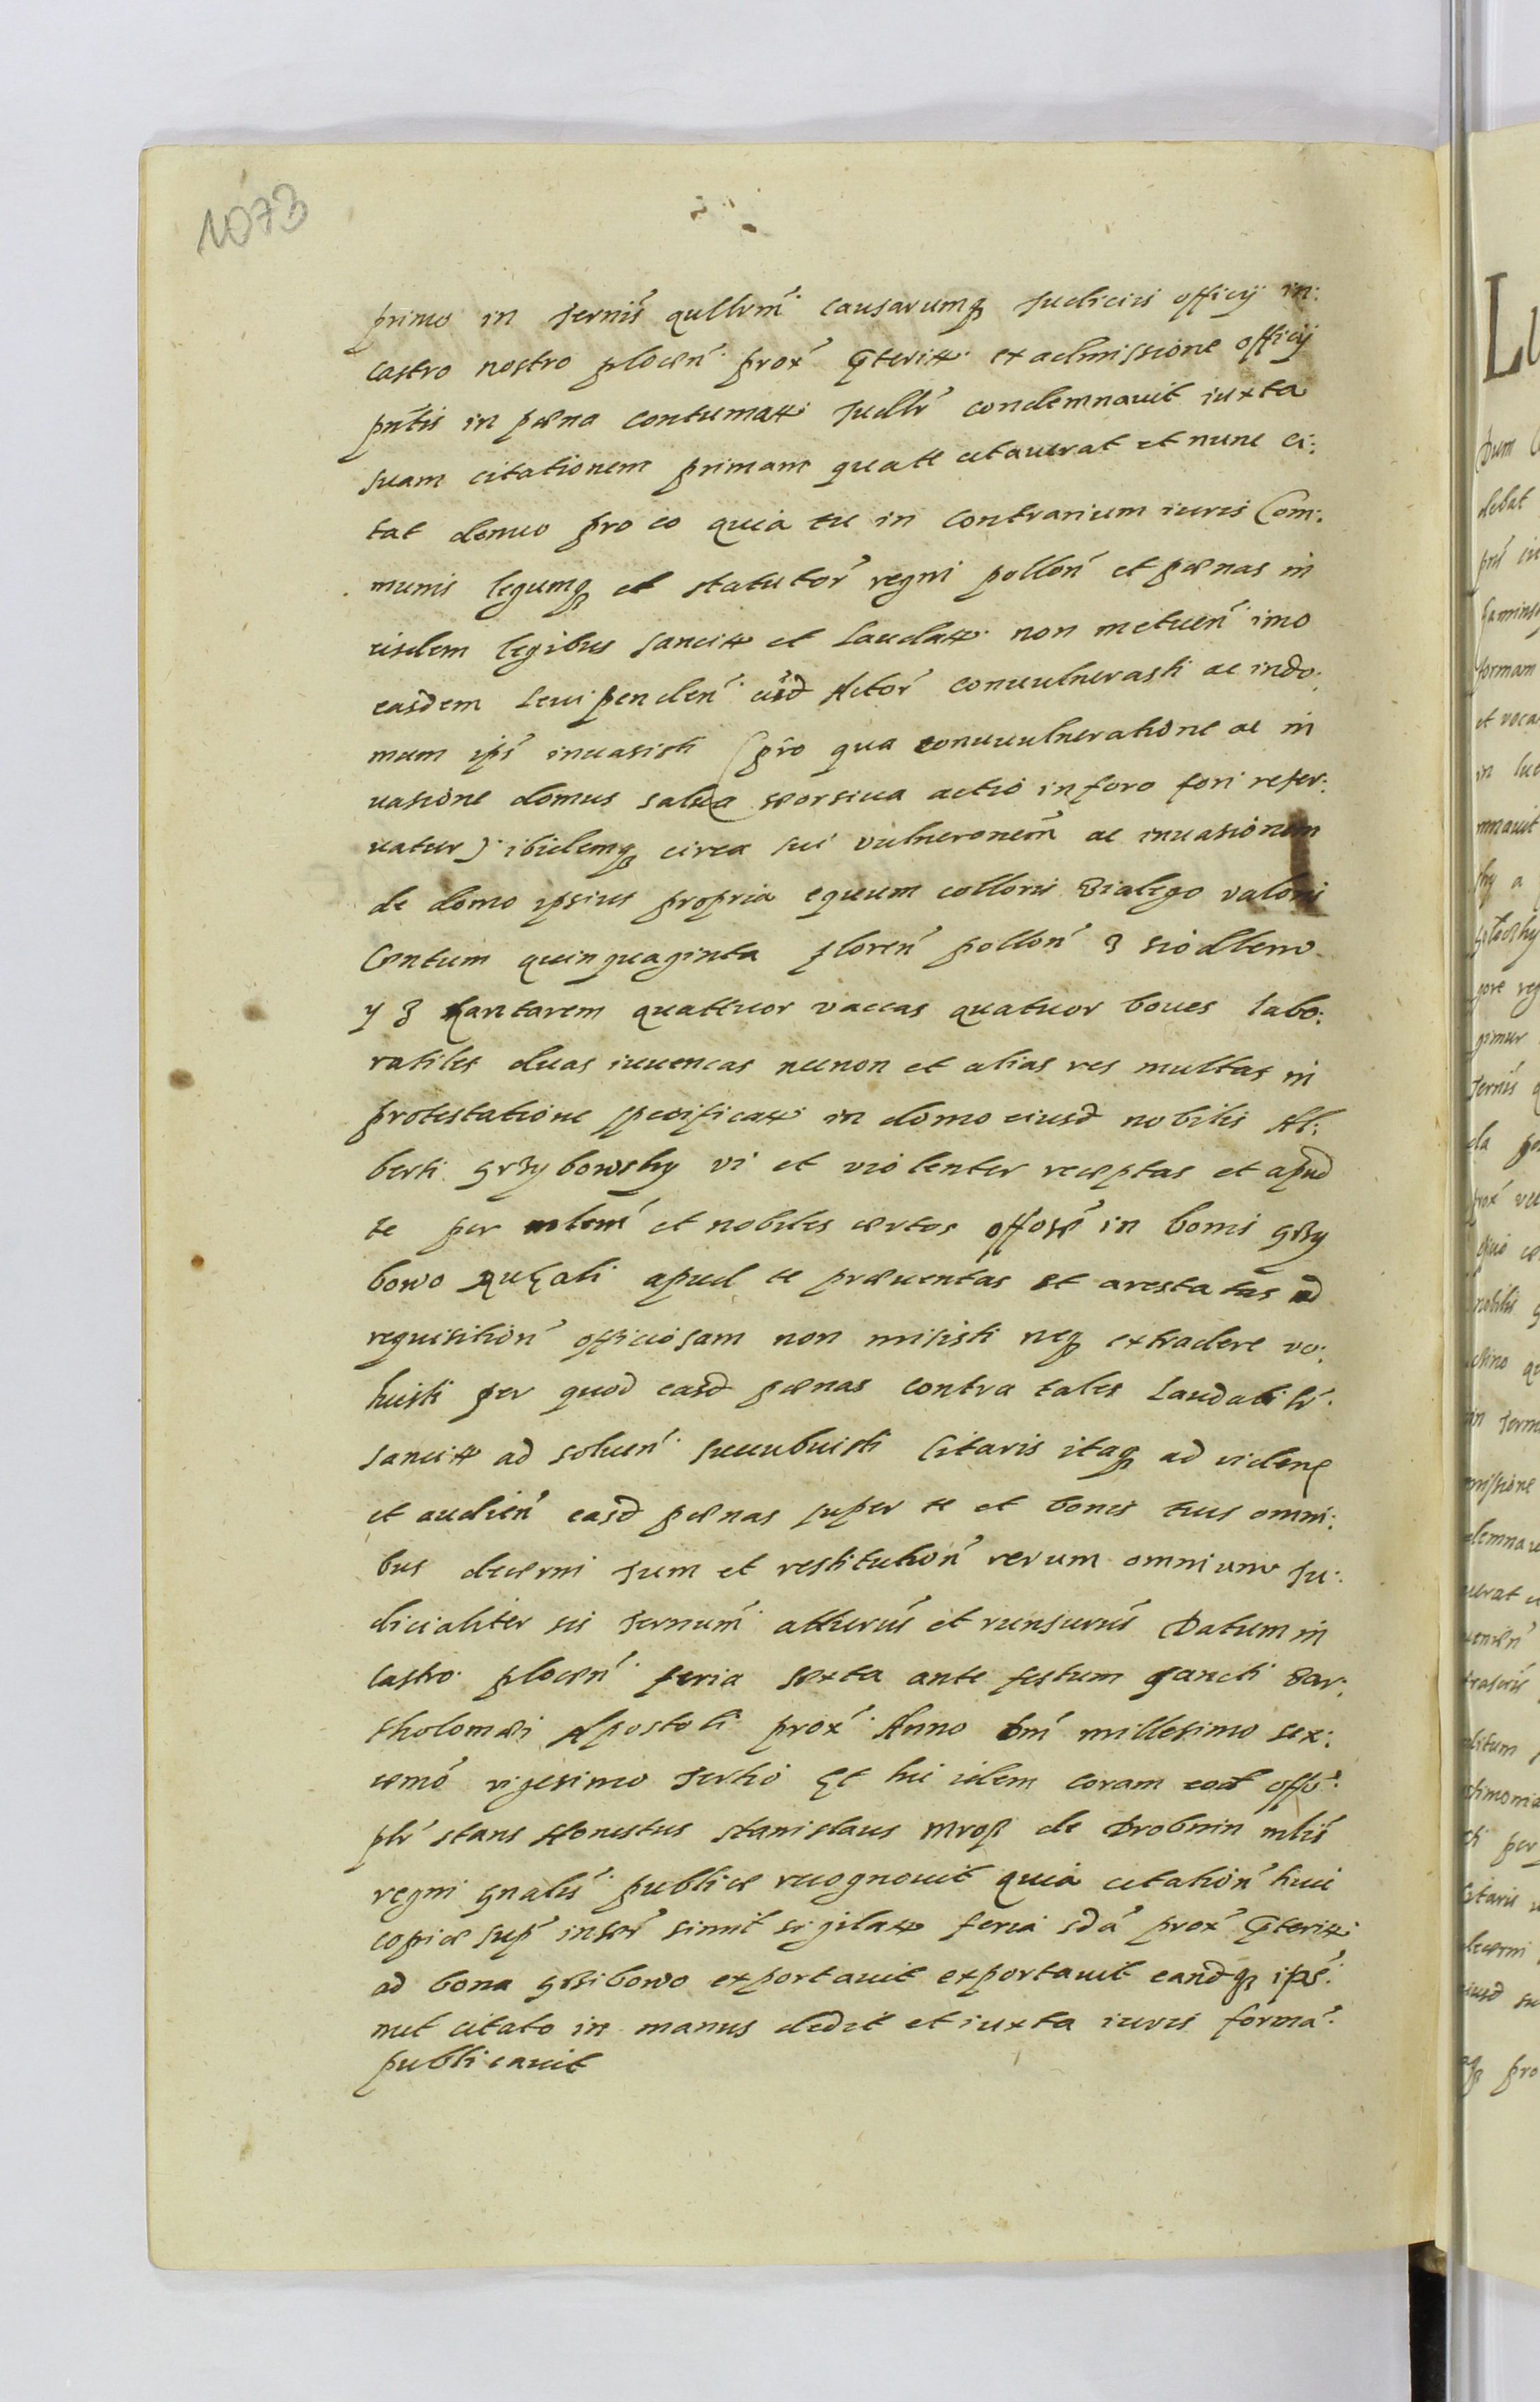 1073
primo in Termīs qullrm̄ causarumq Judiciis officij in:
castro nostro plocen̄ prox̄ p̄teritt: ex admissione officij
pn̄tis in pœna contumatt: Judlr̄ condemnauit iuxta
suam citationem primam qua te citauerat et nunc ci:
tat denuo pro eo quia tu in contrarium iuris Com:
munis legumq et statutor̄ regni pollon̄ et pœnas in
eisdem legibus sancitt et laudatt: non metuen̄ imo
easdem leui penden̄ eūd Actor̄ conuulnerasti ac in do:
mum ips̄ inuasisti (pro qua conuuulneratione ac in
uasione domus salua seorsiua actio in foro fori reser:
uatur) ibidemq circa sui vulneronem̄ ac inuasionem
de domo ipsius propria equum colloris Bialego valoris
Centum quinquaginta floren̄ pollon̄ z siodlem
y z hantarem quattuor vaccas quatuor boues labo:
ratiles duas iuuencas necnon et alias res multas in
protestatione specificatt: in domo eiusd nobilis Al:
berti Grzybowsky vi et violenter receptas et apud
te per mlem̄ et nobiles certos offose in bonis Grzy
bowo apud te præuentas et arestatas ad
requisition̄ officiosam non misisti neq extradere vo:
luisti per quod easd pœnas contra tales laudabilr̄
sancitt ad soluen̄ succubuisti Citaris itaq ad viden
et audien̄ easd pœnas super te et bonis tuis omni:
bus decerni Tum et restitution̄ rerum omnium Ju:
dicialiter sis Termum̄ atterus̄ et runsurus̄ Datum in
Castro plocen̄ feria sexta ante festum sancti Bar:
tholomæi Apostoli prox̄ Anno dm̄ millesimo sex:
cemo̅ vigesimo Tertio Et hic idem coram eod offo
plr̄ stans Honestus Stanislaus Mroz de Drobnin mlis̄
regni gnalis̄ publice recognouit quia citation̄ huic
copiæ sup̄ inser̄ simil̄ sigilatt feria sdā prox̄ p̄teritt:
ad bona Grzibowo exportauit exportauit eandq ipse
met citato in manus dedit et iuxta iuris formā
publicauit